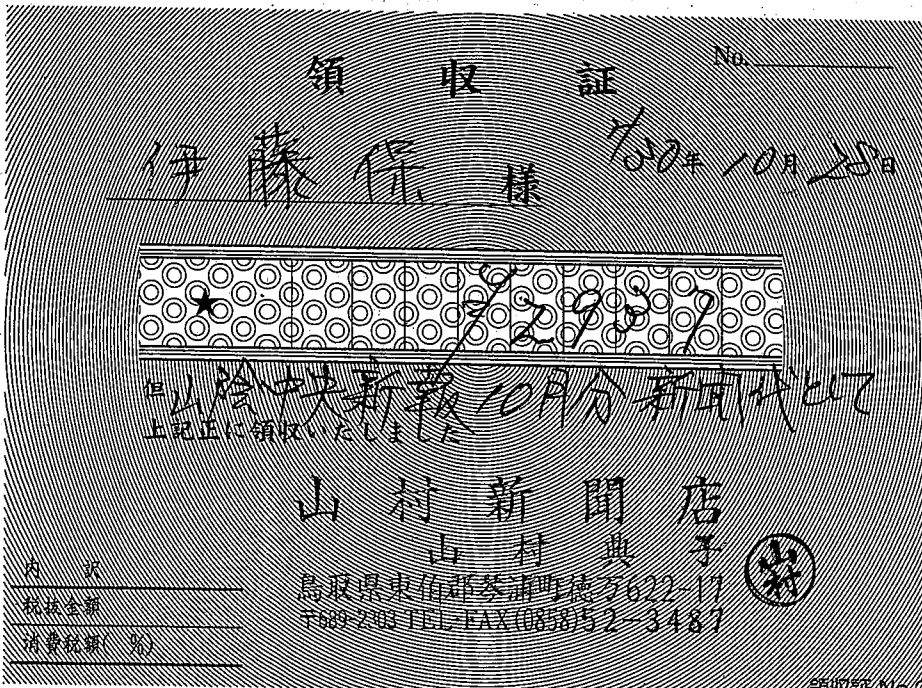 領収証
No.
伊藤保 様
H30年10月25日
★ ¥2937
但 山陰中央新報10月分新聞代として
上記正に領収いたしました
山村新聞店
山村典子
山村
鳥取県東伯郡琴浦町徳万622-17
〒689-2303 TEL・FAX(0858)52-3487
内訳
税抜金額
消費税額( %)